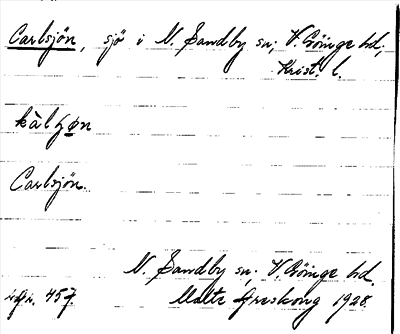 Carlsjön, sjö i N. Sandby sn; V. Göinge hd,
Krist. l.
Carlsjön.
N. Sandby sn; V. Göinge hd.
457. Malte Areskoug 1928.